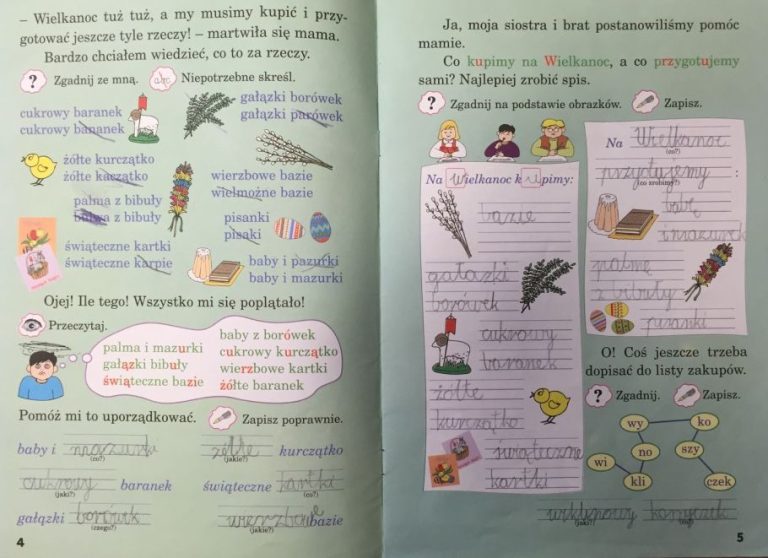 – Wielkanoc tuż tuż, a my musimy kupić i przy-
gotować jeszcze tyle rzeczy! – martwiła się mama.
Bardzo chciałem wiedzieć, co to za rzeczy.
? Zgadnij ze mną. abc Niepotrzebne skreśl.
cukrowy baranek
cukrowy bananek
gałązki borówek
gałązki parówek
żółte kurczątko
żółte kaczątko
wierzbowe bazie
wielmożne bazie
palma z bibuły
bulwa z bibuły
pisanki
pisaki
świąteczne kartki
świąteczne karpie
baby i pazurki
baby i mazurki
Ojej! Ile tego! Wszystko mi się poplątało!
Przeczytaj.
palma i mazurki
gałązki bibuły
świąteczne bazie
baby z borówek
cukrowy kurczątko
wierzbowe kartki
żółte baranek
Pomóż mi to uporządkować. Zapisz poprawnie.
baby i mazurki
(co?)
żółte kurczątko
(jakie?)
cukrowy baranek
(jaki?)
świąteczne kartki
(co?)
gałązki borówek
(czego?)
wierzbowe bazie
(jakie?)
4
Ja, moja siostra i brat postanowiliśmy pomóc
mamie.
Co kupimy na Wielkanoc, a co przygotujemy
sami? Najlepiej zrobić spis.
? Zgadnij na podstawie obrazków. Zapisz.
Na Wielkanoc kupimy:
bazie
gałązki
borówek
cukrowy
baranek
żółte
kurczątko
świąteczne
kartki
Na Wielkanoc
(co?)
przygotujemy :
(co zrobimy?)
babę
i mazurek
palmę
z bibuły
pisanki
O! Coś jeszcze trzeba
dopisać do listy zakupów.
? Zgadnij. Zapisz.
wy
ko
no
szy
wi
kli
czek
wiklinowy koszyczek
(jaki?)
5